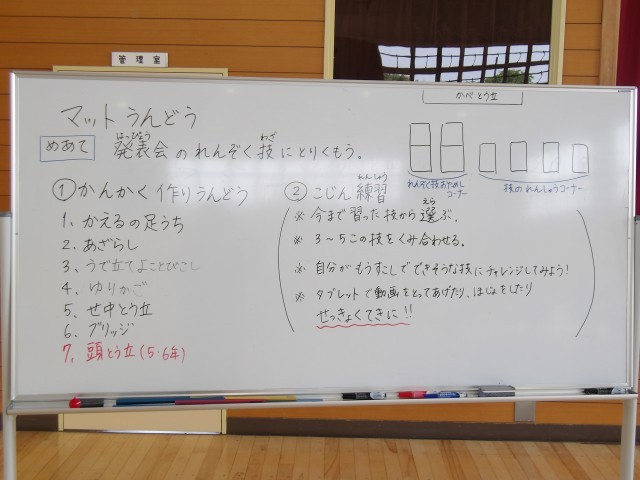 管理室
マットうんどう
かべとう立
めあて 発表会のれんぞく技にとりくもう。
はっぴょう わざ
れんぞく技おためしコーナー
技のれんしゅうコーナー
①かんかく作りうんどう
1、かえるの足うち
2、あざらし
3、うで立てよことびこし
4、ゆりかご
5、せ中とう立
6、ブリッジ
7、頭とう立(5・6年)
②こじん練習
れんしゅう
※ 今まで習った技から選ぶ。
えら
※ 3~5この技をくみ合わせる。
※ 自分がもうすこしでできそうな技にチャレンジしてみよう!
※ タブレットで動画をとってあげたり、ほじょをしたり
せっきょくてきに!!